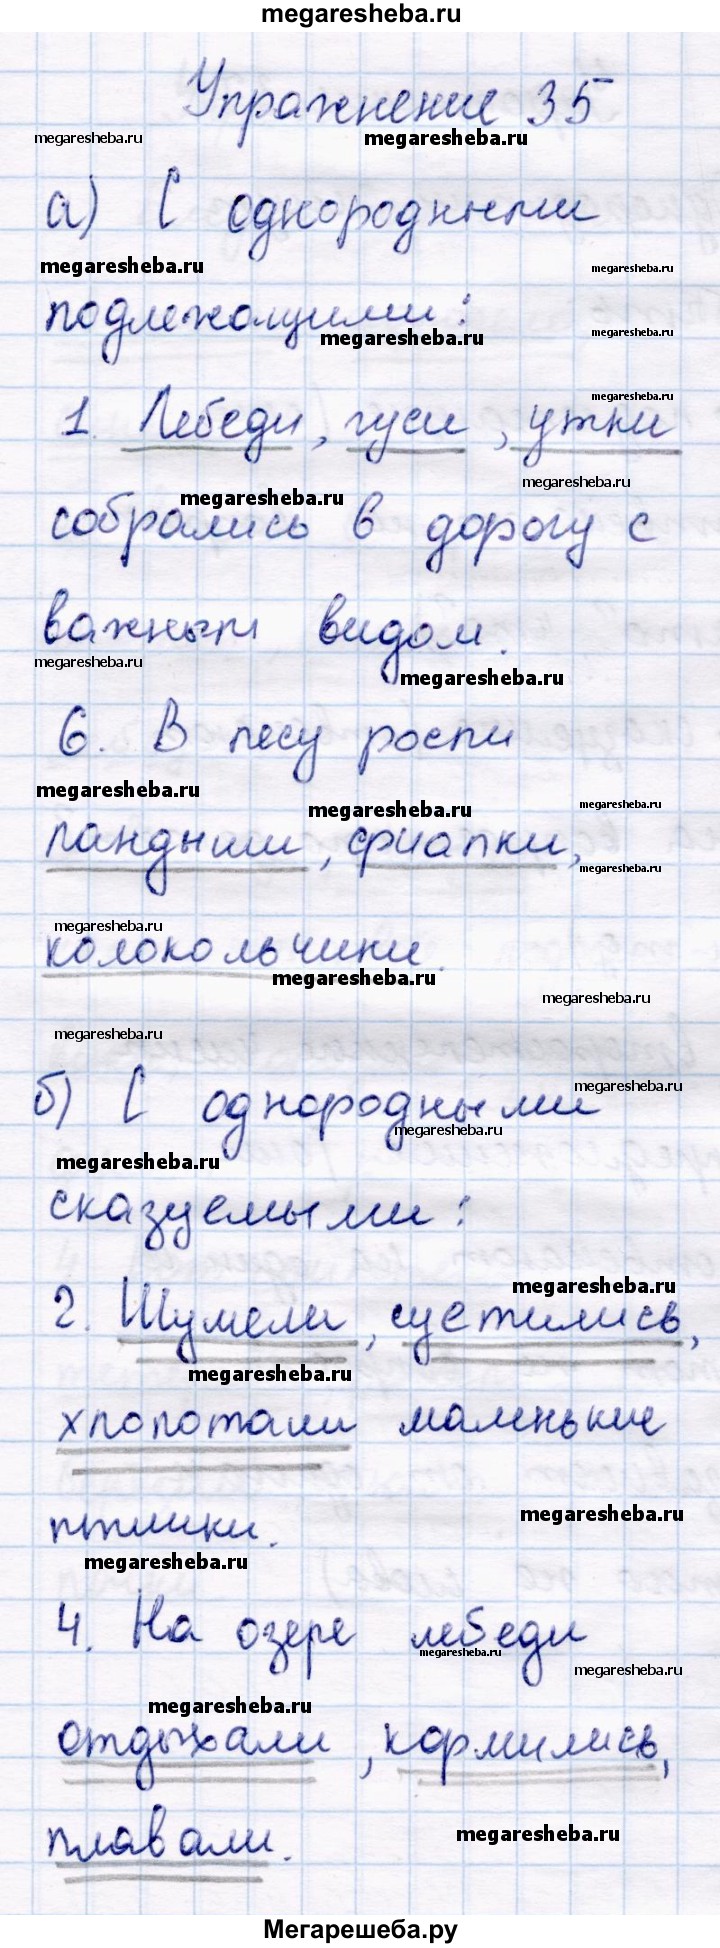 megaresheba.ru
Упражнение 35
megaresheba.ru megaresheba.ru
а) С однородными
megaresheba.ru megaresheba.ru
подлежащими:
megaresheba.ru megaresheba.ru
megaresheba.ru
1. Лебеди, гуси, утки
megaresheba.ru
megaresheba.ru
собрались в дорогу с
важным видом.
megaresheba.ru megaresheba.ru
6. В лесу росли
megaresheba.ru megaresheba.ru megaresheba.ru
ландыши, фиалки,
megaresheba.ru
megaresheba.ru
колокольчики.
megaresheba.ru megaresheba.ru
megaresheba.ru
megaresheba.ru
б) С однородными
megaresheba.ru
megaresheba.ru
сказуемыми:
megaresheba.ru
2. Шумели, суетились,
megaresheba.ru
хлопотали маленькие
megaresheba.ru
птички.
megaresheba.ru
4. На озере лебеди
megaresheba.ru megaresheba.ru
megaresheba.ru
отдыхали, кормились,
плавали.
megaresheba.ru
Мегарешеба.ру